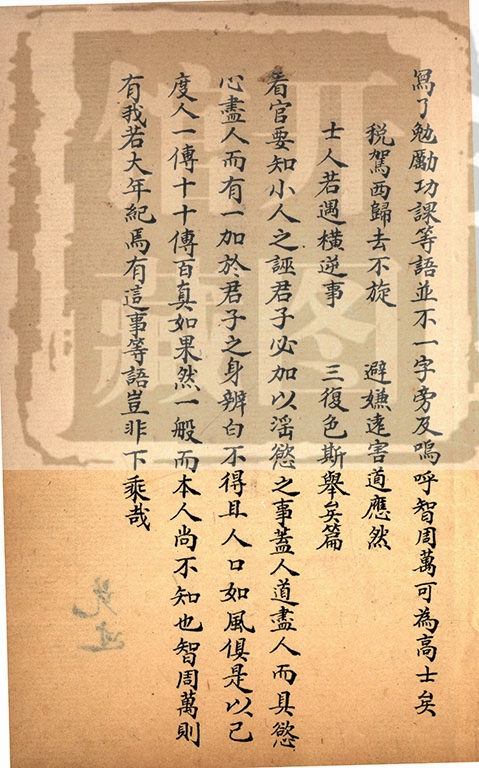 寫了勉勵功課等語並不一字旁及嗚呼智周萬可為高士矣
稅駕西歸去不旋 避嫌遠害道應然
士人若遇橫逆事 三復色斯舉矣篇
看官要知小人之誣君子必加以淫慾之事蓋人道盡人而具慾
心盡人而有一加於君子之身辨白不得且人口如風俱是以己
度人一傳十十傳百真如果然一般而本人尚不知也智周萬則
有我若大年紀焉有這事等語豈非下乘哉
开图
馆藏